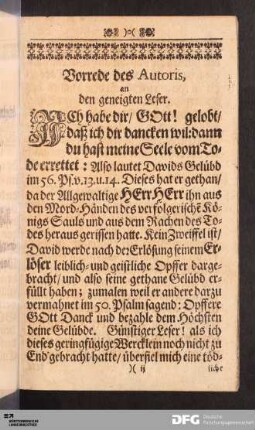 Vorrede des Autoris,
an
den geneigten Leser.
ICh habe dir/ GOtt! gelobt/
daß ich dir dancken wil: dann
du hast meine Seele vom To-
de errettet: Also lautet Davids Gelübd
im 56. Ps. v. 13. u. 14. Dieses hat er gethan/
da der Allgewaltige HErr HErr ihn aus
den Mord-Händen des verfolgerische Kö-
nigs Sauls und aus dem Rachen des To-
des heraus gerissen hatte. Kein Zweiffel ist/
David werde nach der Erlösung seinem Er-
löser leiblich- und geistliche Opffer darge-
bracht/ und also seine gethane Gelübd er-
füllt haben; zumalen weil er andere darzu
vermahnet im 50. Psalm sagend: Opffere
GOtt Danck und bezahle dem Höchsten
deine Gelübde. Günstiger Leser! als ich
dieses geringfügige Wercklein noch nicht zu
End gebracht hatte/ überfiel mich eine töd-
)( ij
liche
DFG
Deutsche
Forschungsgemeinschaft